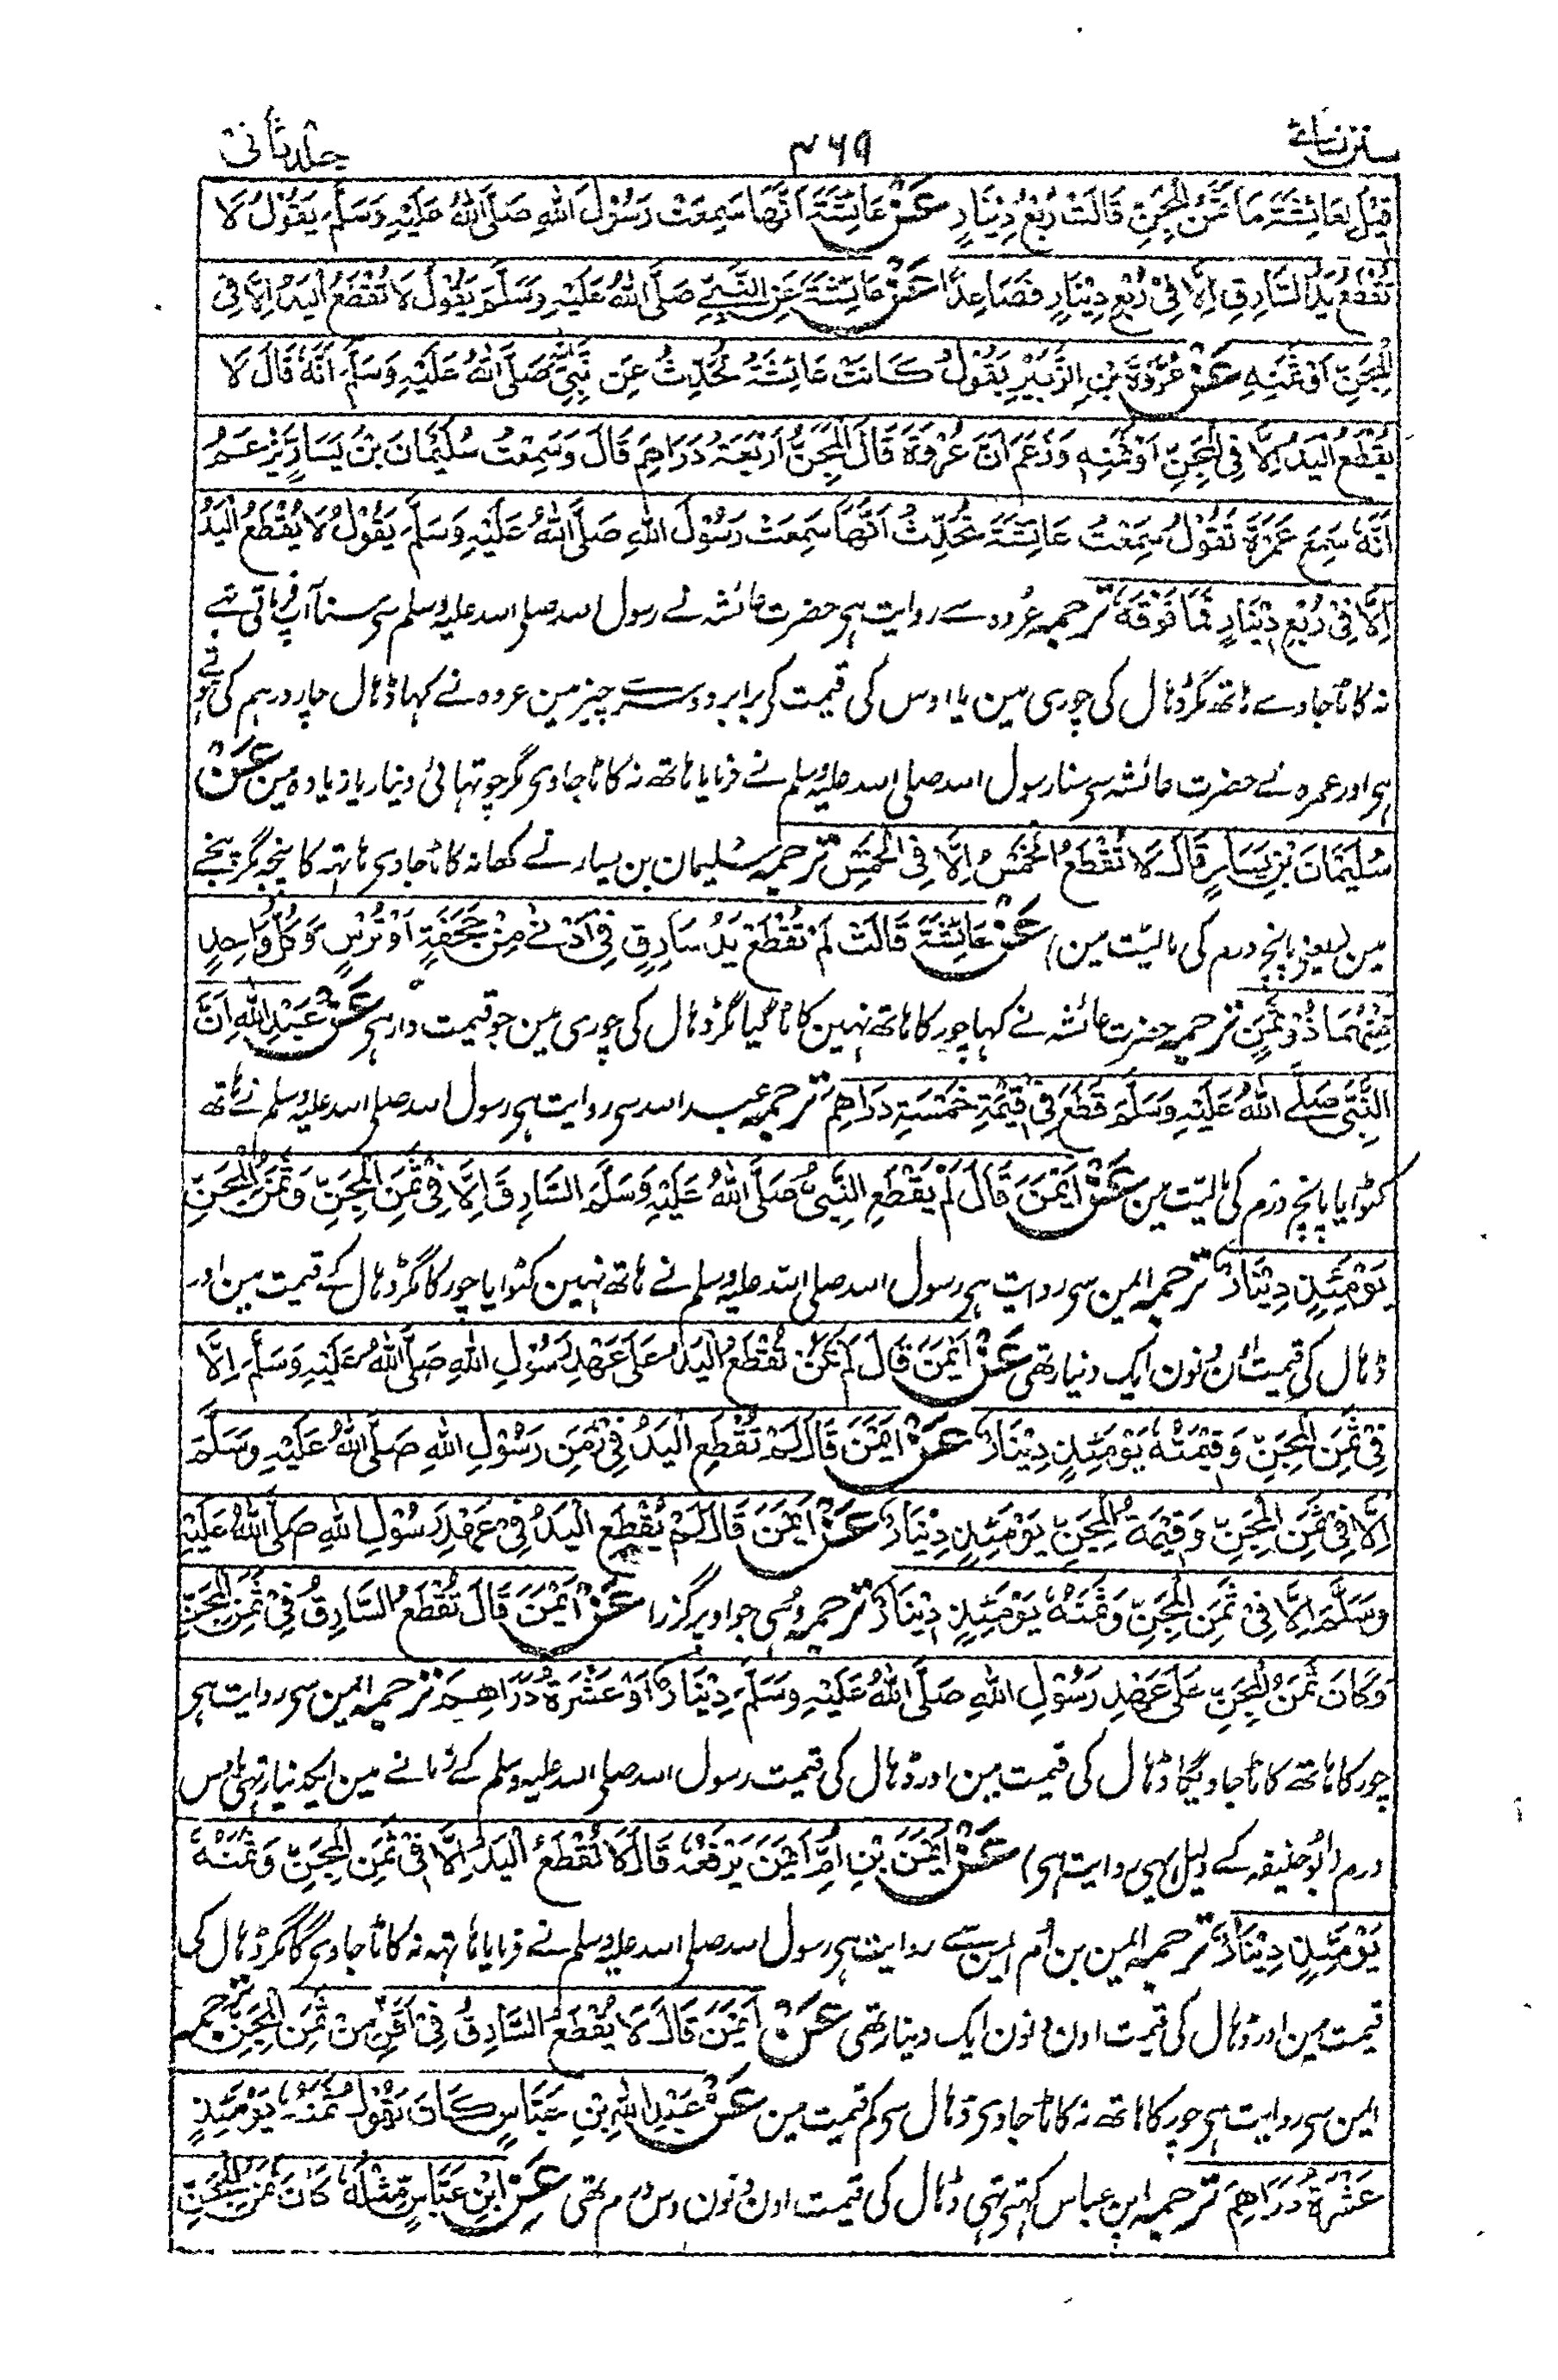 سنن نسائے ۴۶۹ جلد ثانی
قِیْلَ لِعَائِشَةَ مَا ثَمَنُ الْمِجَنِّ قَالَتْ رُبْعُ دِیْنَارٍ عَنْ عَائِشَةَ اَنَّهَا سَمِعَتْ رَسُوْلَ اللّٰهِ صَلَّی اللّٰهُ عَلَیْهِ وَسَلَّمَ یَقُوْلُ لَا
تُقْطَعُ یَدُ السَّارِقِ اِلَّا فِیْ رُبْعِ دِیْنَارٍ فَصَاعِدًا عَنْ عَائِشَةَ عَنِ النَّبِیِّ صَلَّی اللّٰهُ عَلَیْهِ وَسَلَّمَ یَقُوْلُ لَا تُقْطَعُ الْیَدُ اِلَّا فِی
الْمِجَنِّ اَوْ ثَمَنِهِ عَنْ عُرْوَةَ بْنِ الزُّبَیْرِ یَقُوْلُ کَانَتْ عَائِشَةُ تُحَدِّثُ عَنْ نَبِیِّ اللّٰهِ صَلَّی اللّٰهُ عَلَیْهِ وَسَلَّمَ اَنَّهٗ قَالَ لَا
یُقْطَعُ الْیَدُ اِلَّا فِی الْمِجَنِّ اَوْ ثَمَنِهٖ وَزَعَمَ اَنَّ عُرْوَةَ قَالَ الْمِجَنُّ اَرْبَعَةُ دَرَاهِمَ قَالَ وَسَمِعْتُ سُلَیْمَانَ بْنَ یَسَارٍ یَزْعَمُ
اَنَّهٗ سَمِعَ عَمْرَةَ تَقُوْلُ سَمِعْتُ عَائِشَةَ تُحَدِّثُ اَنَّهَا سَمِعَتْ رَسُوْلَ اللّٰهِ صَلَّی اللّٰهُ عَلَیْهِ وَسَلَّمَ یَقُوْلُ لَا یُقْطَعُ الْیَدُ
اِلَّا فِیْ رُبْعِ دِیْنَارٍ فَمَا فَوْقَهٗ ترجمہ عُروہ سے روایت ہی حضرت عائشہ نے رسول اللہ صلی اللہ علیہ وسلم سی سنا آپ فرماتی تہے
نہ کاٹا جاوے ہاتھ مگر ڈھال کی چوری مین یا اوس کی قیمت کی برابر دوسرے چیز مین عروہ نے کہا ڈھال چار درہم کی ہوتے
ہی اور عمرہ نے حضرت عائشہ سی سنا رسول اللہ صلی اللہ علیہ وسلم نے فرمایا ہاتھ نہ کاٹا جاوی مگر چوتہائی دینار یا زیادہ مین عَنْ
سُلَیْمَانَ بْنِ یَسَارٍ قَالَ لَا تُقْطَعُ الْخَمْسُ اِلَّا فِی الْخَمْسِ ترجمہ سلیمان بن یسار نے کہا نہ کاٹا جاوی ہاتہہ کا پنجہ مگر پنجے
مین (یعنی پانچ درم کی مالیت مین) عَنْ عَائِشَةَ قَالَتْ لَمْ تُقْطَعْ یَدُ سَارِقٍ فِیْ اَدْنٰے مِنْ حَجَفَةٍ اَوْ تُرْسٍ وَکُلُّ وَاحِدٍ
مِّنْهُمَا ذُوْ ثَمَنٍ ترجمہ حضرت عائشہ نے کہا چور کا ہاتھ نہین کاٹا گیا مگر ڈھال کی چوری مین جو قیمت دار ہی عَنْ عَبْدِ اللّٰهِ اَنَّ
النَّبِیَّ صَلَّے اللّٰهُ عَلَیْهِ وَسَلَّمَ قَطَعَ فِیْ قِیْمَةِ خَمْسَةِ دَرَاهِمَ ترجمہ عبد اللہ سی روایت ہی رسول اللہ صلی اللہ علیہ وسلم نے ہاتھ
کٹوایا پانچ درم کی مالیت مین عَنْ اَیْمَنَ قَالَ لَمْ یَقْطَعِ النَّبِیُّ صَلَّی اللّٰهُ عَلَیْهِ وَسَلَّمَ السَّارِقَ اِلَّا فِیْ ثَمَنِ الْمِجَنِّ وَثَمَنُ الْمِجَنِّ
یَوْمَئِذٍ دِیْنَارٌ ترجمہ ایمن سی روایت ہی رسول اللہ صلی اللہ علیہ وسلم نے ہاتھ نہین کٹوایا چور کا مگر ڈھال کے قیمت مین اور
ڈھال کی قیمت اُن دنون ایک دینار تھی عَنْ اَیْمَنَ قَالَ لَمْ تَکُنْ تُقْطَعُ الْیَدُ عَلٰی عَهْدِ رَسُوْلِ اللّٰهِ صَلَّی اللّٰهُ عَلَیْهِ وَسَلَّمَ اِلَّا
فِیْ ثَمَنِ الْمِجَنِّ وَقِیْمَتُهٗ یَوْمَئِذٍ دِیْنَارٌ عَنْ اَیْمَنَ قَالَ لَمْ تُقْطَعِ الْیَدُ فِیْ زَمَنِ رَسُوْلِ اللّٰهِ صَلَّی اللّٰهُ عَلَیْهِ وَسَلَّمَ
اِلَّا فِیْ ثَمَنِ الْمِجَنِّ وَقِیْمَةُ الْمِجَنِّ یَوْمَئِذٍ دِیْنَارٌ عَنْ اَیْمَنَ قَالَ لَمْ یُقْطَعِ الْیَدُ فِیْ عَهْدِ رَسُوْلِ اللّٰهِ صَلَّی اللّٰهُ عَلَیْهِ
وَسَلَّمَ اِلَّا فِیْ ثَمَنِ الْمِجَنِّ وَثَمَنُهٗ یَوْمَئِذٍ دِیْنَارٌ ترجمہ وُہی جو اوپر گزرا عَنْ اَیْمَنَ قَالَ تُقْطَعُ السَّارِقُ فِیْ ثَمَنِ الْمِجَنِّ
وَکَانَ ثَمَنُ الْمِجَنِّ عَلٰی عَهْدِ رَسُوْلِ اللّٰهِ صَلَّی اللّٰهُ عَلَیْهِ وَسَلَّمَ دِیْنَارٌ اَوْ عَشْرَةُ دَرَاهِمَ ترجمہ ایمن سی روایت ہی
چور کا ہاتھ کاٹا جاویگا ڈھال کی قیمت مین اور ڈھال کی قیمت رسول اللہ صلی اللہ علیہ وسلم کے زمانے مین ایکدینار تہی یا دس
درم (ابُو حنیفہ کے دلیل یہی روایت ہی) عَنْ اَیْمَنَ بْنِ اُمِّ اَیْمَنَ یَرْفَعُهٗ قَالَ لَا تُقْطَعُ الْیَدُ اِلَّا فِیْ ثَمَنِ الْمِجَنِّ وَثَمَنُهٗ
یَوْمَئِذٍ دِیْنَارٌ ترجمہ ایمن بن اُم ایمن سے روایت ہی رسول اللہ صلی اللہ علیہ وسلم نے فرمایا ہاتہہ نہ کاٹا جاوی گا مگر ڈھال کی
قیمت مین اور ڈھال کی قیمت اون دنون ایک دینار تھی عَنْ اَیْمَنَ قَالَ لَا یُقْطَعُ السَّارِقُ فِیْ اَقَلَّ مِنْ ثَمَنِ الْمِجَنِّ ترجمہ
ایمن سی روایت ہی چور کا ہاتھ نہ کاٹا جاوی ڈھال سی کم قیمت مین عَنْ عَبْدِ اللّٰهِ بْنِ عَبَّاسٍ کَانَ یَقُوْلُ ثَمَنُهٗ یَوْمَئِذٍ
عَشْرَةُ دَرَاهِمَ ترجمہ ابن عباس کہتی تہی ڈھال کی قیمت اون دنون دس درم تھی عَنِ ابْنِ عَبَّاسٍ مِّثْلَهٗ کَانَ ثَمَنُ الْمِجَنِّ